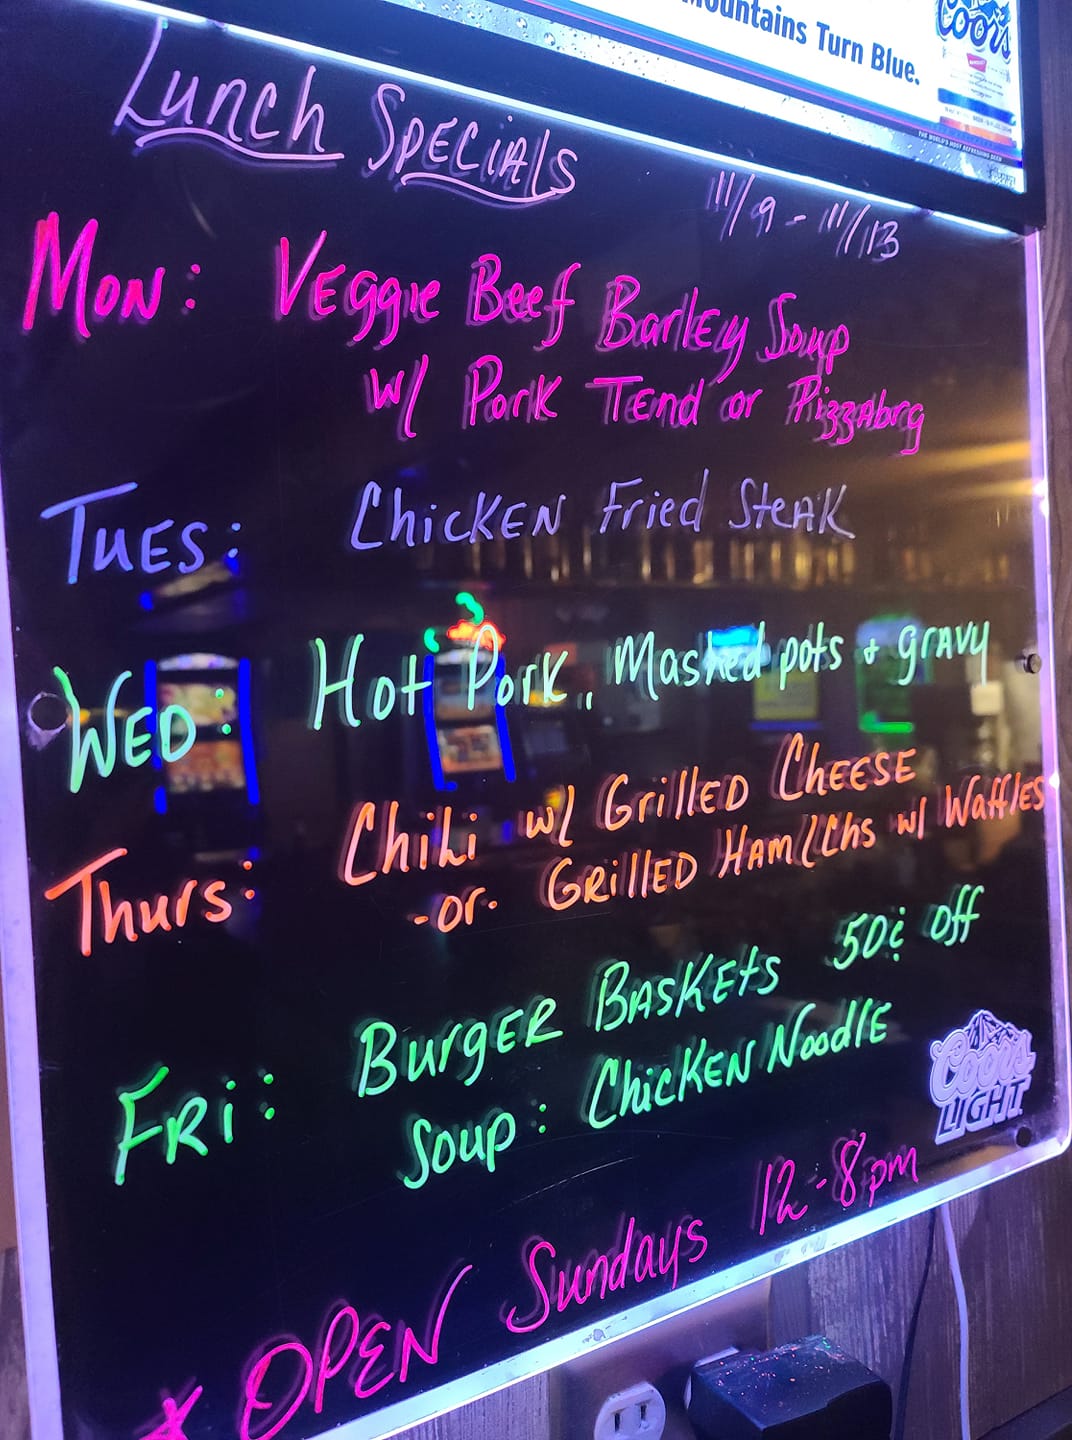 Mountains Turn Blue.
Coors
THE WORLD'S MOST REFRESHING BEER
Lunch Specials
11/9 - 11/13
Mon: Veggie Beef Barley Soup
w/ Pork Tend or Pizzaburg
Tues: Chicken Fried Steak
Wed: Hot Pork, Mashed pots + gravy
Thurs: Chili w/ Grilled Cheese
-or- Grilled Ham/Chs w/ Waffles
Fri: Burger Baskets 50¢ off
Soup: Chicken Noodle
Coors
LIGHT
* OPEN Sundays 12-8pm